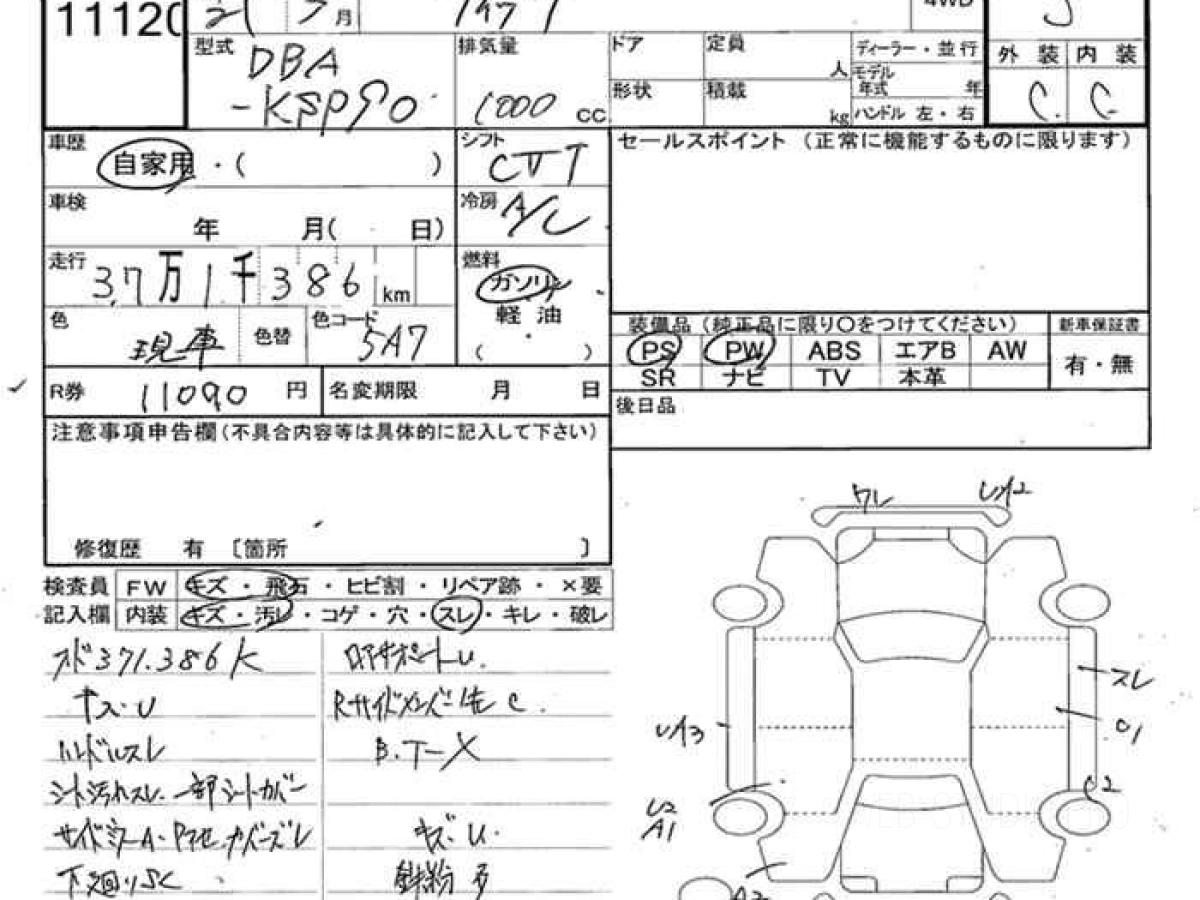 11120
21 5月
4WD
型式 DBA
-KSP90
排気量 1000 cc
ドア 定員 人
形状 積載 kg
ディーラー・並行
モデル年式 年
ハンドル 左・右
外装 内装
C C
車歴 自家用・( )
シフト CVT
セールスポイント (正常に機能するものに限ります)
車検 年 月( 日)
冷房 A/C
走行 37万1千386 km
燃料 ガソリン
軽油
( )
色 現車 色替 色コード 5A7
装備品 (純正品に限り○をつけてください)
新車保証書
PS PW ABS エアB AW
有・無
SR ナビ TV 本革
R券 11090 円 名変期限 月 日
後日品
注意事項申告欄(不具合内容等は具体的に記入して下さい)
修復歴 有 〔箇所 〕
検査員 FW キズ・飛石・ヒビ割・リペア跡・×要
記入欄 内装 キズ・汚レ・コゲ・穴・スレ・キレ・破レ
371.386K
ハンドルスレ
シート汚れスレ 一部シートカバー
下廻りSC
ロアサポートU.
Rサイドメンバー先 C.
キズ・U.
鉄粉 多
ワレ
UA2
UA3
スレ
C1
C2
U2
A1
A2